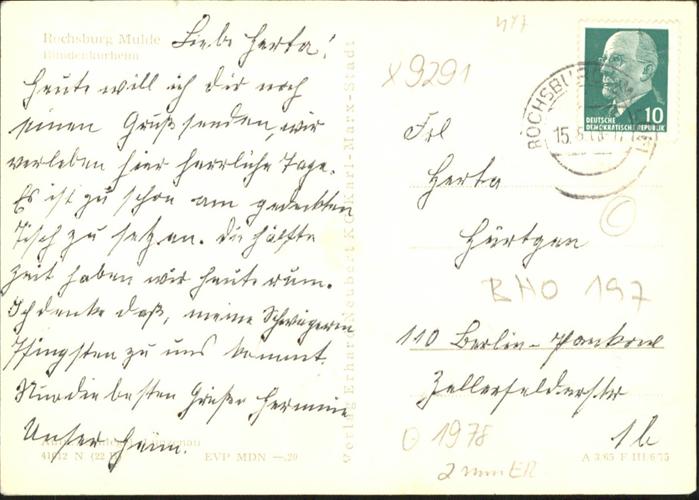 Rochsburg Mulde
Bundeskurheim
Liebe Herta!
Heute will ich dir noch
einen Gruß senden, wir
verleben hier herrliche Tage.
Es ist zu schön am gedeckten
Tisch zu setzen. Die hälfte
Zeit haben wir heute rum.
Ich denke daß, meine Schwägerin
Pfingsten zu uns kommt.
Nun die besten Grüße Hermine
Unser Heim.
41612 N (22 )
EVP MDN —.20
Verlag Erhard Neubert K Karl-Marx-Stadt
477
x 9291
ROCHSBURG
15.
10
DEUTSCHE
DEMOKRATISCHE REPUBLIK
Frl
Herta
Hürtgen
C
BHO 197
110 Berlin-Pankow
Zellerfelderstr
1b
1978
2 mm ER
A 3/65 F III 6/75